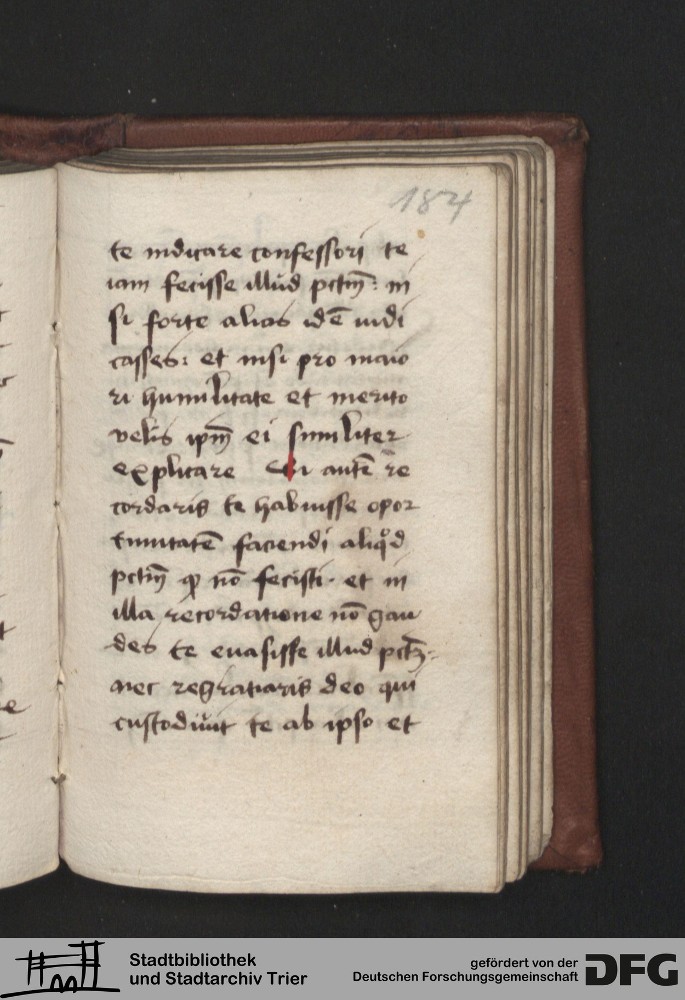 184
te indicare confessori te
iam fecisse illud pctm̄: ni
si forte alias idē indi
casses: et nisi pro maio
ri humilitate et merito
velis ipm̄ ei similiter
explicare Si autē re
cordaris te habuisse opor
tunitatē faciendi aliqͦd
pctm̄ ꝙ nō fecisti. et in
illa recordatione nō gau
des te euasisse illud pctm̄:
nec regratiaris deo qui
custodiuit te ab ipso et
Stadtbibliothek
und Stadtarchiv Trier
gefördert von der
Deutschen Forschungsgemeinschaft
DFG